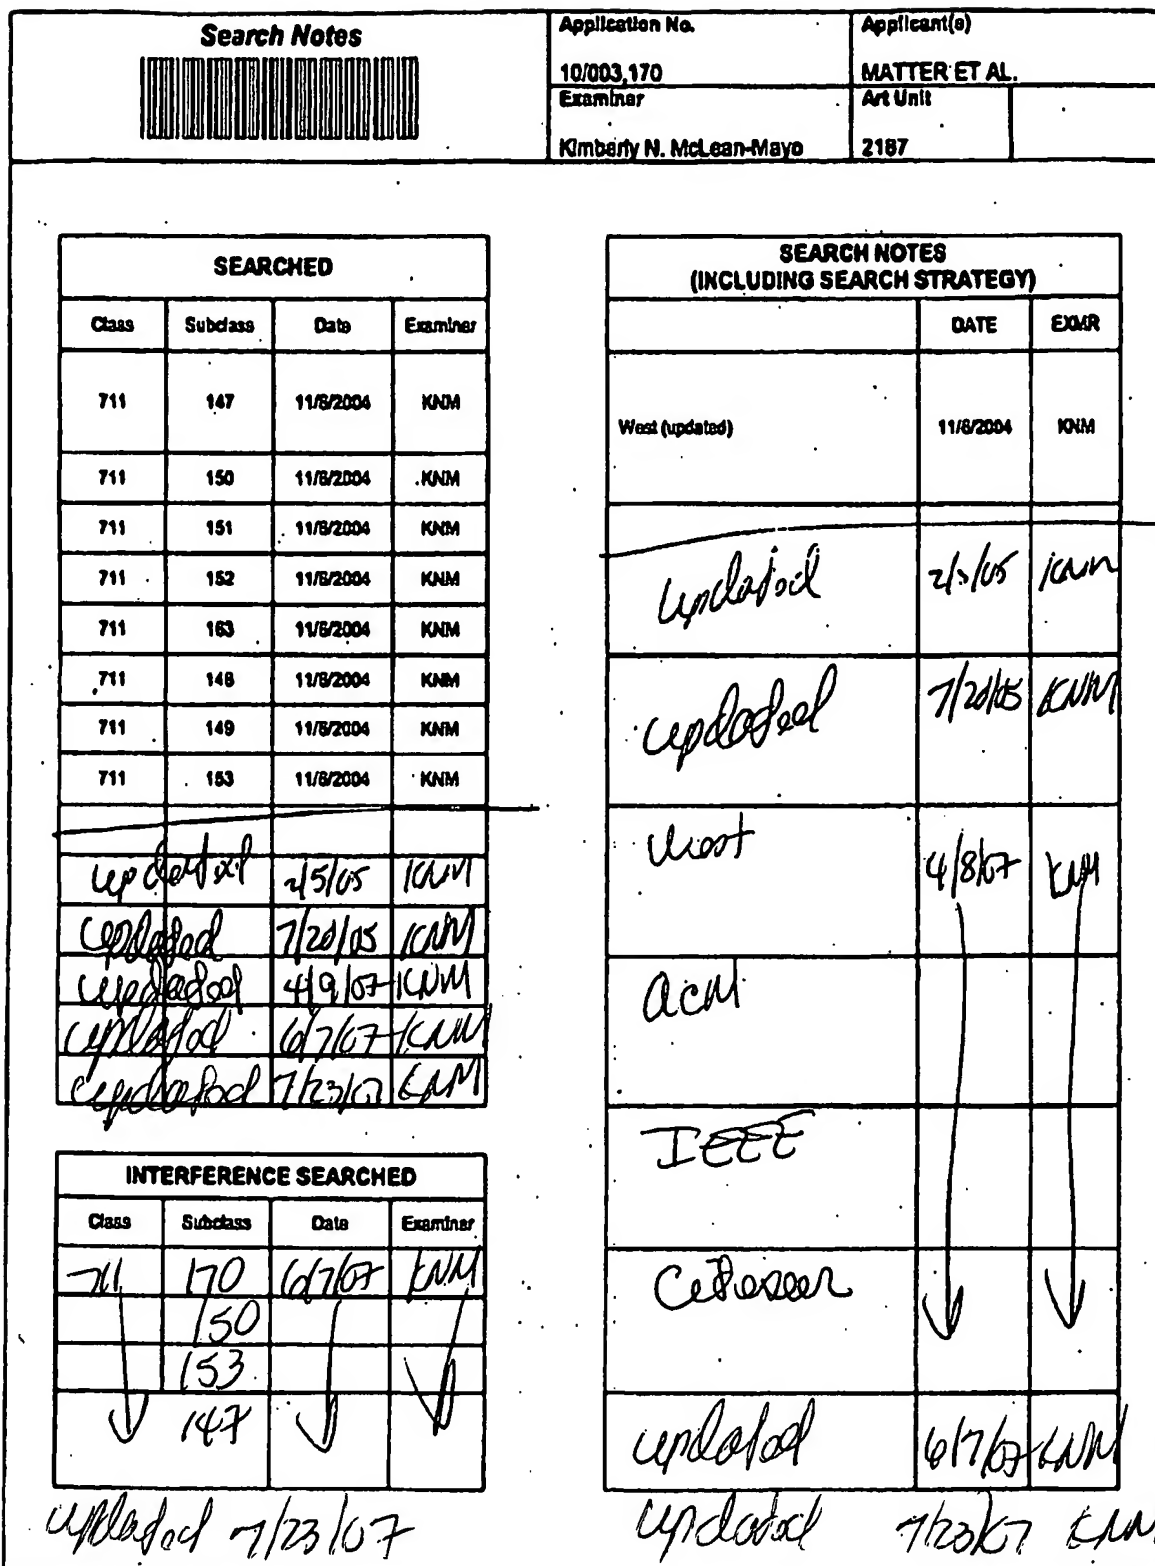 Search Notes
Application No.
Applicant(s)
10/003,170
MATTER ET AL.
Examiner
Art Unit
Kimberly N. McLean-Mayo
2187
SEARCHED
Class Subclass Date Examiner
711 147 11/6/2004 KNM
711 150 11/6/2004 KNM
711 151 11/6/2004 KNM
711 152 11/6/2004 KNM
711 163 11/6/2004 KNM
711 148 11/6/2004 KNM
711 149 11/6/2004 KNM
711 153 11/6/2004 KNM
updated 2/5/05 KNM
updated 7/20/05 KNM
updated 4/9/07 KNM
updated 6/7/07 KNM
updated 7/23/07 KNM
INTERFERENCE SEARCHED
Class Subclass Date Examiner
711 170 6/7/07 KNM
150
153
147
updated 7/23/07
SEARCH NOTES
(INCLUDING SEARCH STRATEGY)
DATE EXMR
West (updated) 11/6/2004 KNM
updated KNM
updated 7/20/05 KNM
West 4/8/07 KNM
ACM
IEEE
Citeseer
updated 6/7/07 KNM
updated 7/23/07 KNM